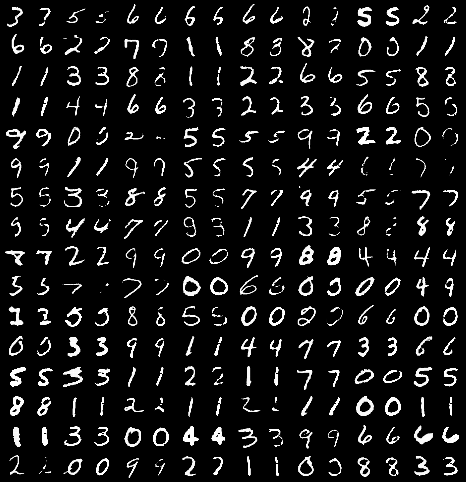 3 3 5 5 6 6 6 6 6 6 2 2 5 5 2 2
6 6 2 2 7 7 1 1 8 3 8 7 0 0 1 1
1 1 3 3 8 8 1 1 2 2 6 6 5 5 8 8
1 1 4 4 6 6 3 3 2 2 3 3 6 6 5 5
9 9 0 0 2 5 5 5 5 9 9 2 2 0 0
9 9 1 1 9 9 5 5 5 5 4 4
5 5 3 3 8 8 5 5 7 7 9 9 5 5 7 7
9 9 4 4 7 7 9 3 1 1 3 3 8 8 8
7 7 2 2 9 9 0 0 9 9 8 8 4 4 4 4
5 5 7 7 7 0 0 6 6 0 0 0 0 4 9
1 1 5 5 8 8 5 5 0 0 2 2 6 6 0 0
0 0 3 3 9 9 1 1 4 4 7 7 3 3 6 6
5 5 3 3 1 1 2 2 1 1 7 7 0 0 5 5
8 8 1 1 2 2 1 1 2 2 1 1 0 0 1 1
1 1 3 3 0 0 4 4 3 3 9 9 6 6 6 6
2 2 0 0 9 9 2 7 1 1 0 0 8 8 3 3